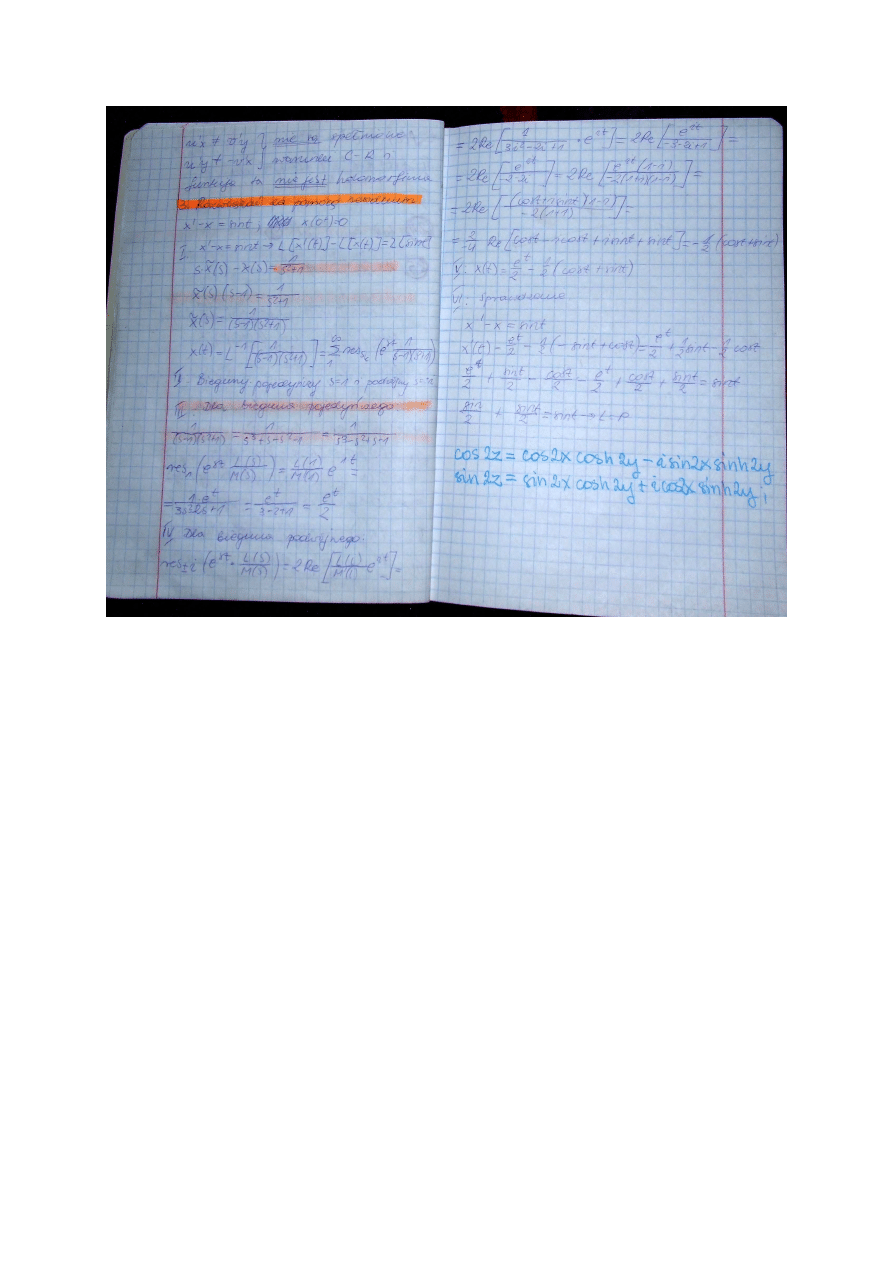 u'x ≠ v'y } nie są spełnione
u'y ≠ -v'x } warunki C-R i
funkcja ta nie jest holomorficzna
3. Rozwiązać za pomocą
x' - x = sint, x(0⁺)=0
I. x' - x = sint → L[x'(t)] - L[x(t)] = L[sint]
s·x̃(s) - x̃(s) = 1/(s²+1)
x̃(s)(s-1) = 1/(s²+1)
x̃(s) = 1/((s-1)(s²+1))
x(t) = L⁻¹[1/((s-1)(s²+1))] = ∑ res (e^{st} 1/((s-1)(s²+1)))
II. Bieguny pojedynczy s=1 i podwójny
III. Dla bieguna pojedynczego
1/((s-1)(s²+1)) = 1/(s³+s-s²-1) = 1/(s³-s²+s-1)
res₁(e^{st} L(s)/M(s)) = L(1)/M'(1) e^{1t} =
= 1·e^t/(3s²-2s+1) = e^t/(3-2+1) = e^t/2
IV. Dla bieguna podwójnego
res±i (e^{st} · L(s)/M(s)) = 2Re[L(i)/M'(i) e^{it}] =
= 2Re[1/(3i²-2i+1) · e^{it}] = 2Re[e^{it}/(-3-2i+1)] =
= 2Re[e^{it}/(-2-2i)] = 2Re[e^{it}(1-i)/(-2(1+i)(1-i))] =
= 2Re[(cost+isint)(1-i)/(-2(1+1))] =
= 2/-4 Re[cost - icost + isint + sint] = -1/2 (cost+sint)
V. x(t) = e^t/2 - 1/2 (cost + sint)
VI. Sprawdzenie
x' - x = sint
x'(t) = e^t/2 - 1/2 (-sint + cost) = e^t/2 + 1/2 sint - 1/2 cost
e^t/2 + sint/2 - cost/2 - e^t/2 + cost/2 + sint/2 = sint
sin/2 + sint/2 = sint → L=P
cos 2z = cos 2x cosh 2y - i sin 2x sinh 2y
sin 2z = sin 2x cosh 2y + i cos 2x sinh 2y,